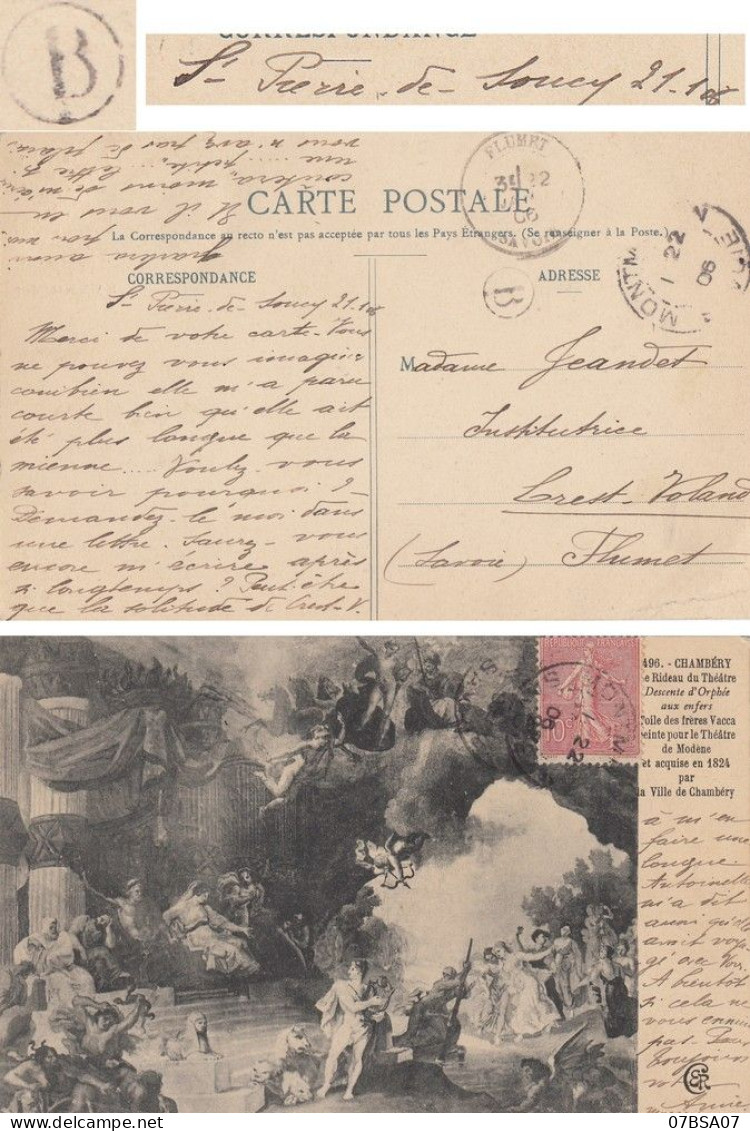 B
CORRESPONDANCE
St Pierre-de-Soucy 21-1-06
coûtera moins de m'écrire
une petite ..... lettre ?
vous n'avez pas de plain
FLUMET
SAVOIE
CARTE POSTALE
La Correspondance au recto n'est pas acceptée par tous les Pays Étrangers. (Se renseigner à la Poste.)
CORRESPONDANCE
ADRESSE
B
MONTM
22
1
06
St Pierre-de-Soucy 21-1-06
Merci de votre carte. Vous
ne pouvez vous imaginer
combien elle m'a paru
courte bien qu'elle ait
été plus longue que la
mienne.... Voulez-vous
savoir pourquoi ?
Demandez-le moi dans
une lettre. Saurez-vous
encore m'écrire après
si longtemps ? Peut-être
que la solitude de Crest-V.
Madame Jeandet
Institutrice
Crest-Voland
(Savoie) Flumet
REPUBLIQUE FRANÇAISE
10c
MONTM
22
06
496. - CHAMBÉRY
e Rideau du Théâtre
Descente d'Orphée
aux enfers
Toile des frères Vacca
peinte pour le Théâtre
de Modène
et acquise en 1824
par
la Ville de Chambéry
à m'en
faire une
longue
Antoinette
m'a dit
aussi qu'elle
avait voya
gé avec vous
A bientôt
si cela ne
vous ennuie
pas.
Toujours
07BSA07